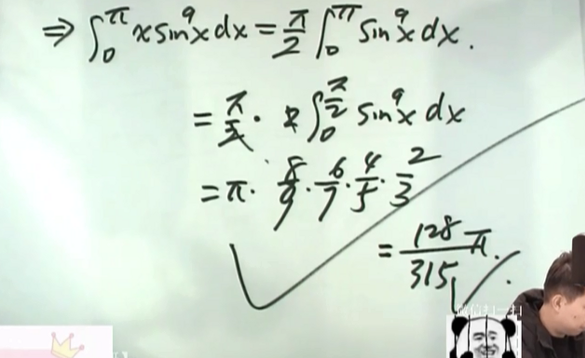 ⇒ ∫₀^π x sin⁹x dx = π/2 ∫₀^π sin⁹x dx.
= π/2 · 2 ∫₀^{π/2} sin⁹x dx
= π · 8/9 · 6/7 · 4/5 · 2/3
= 128/315 π.